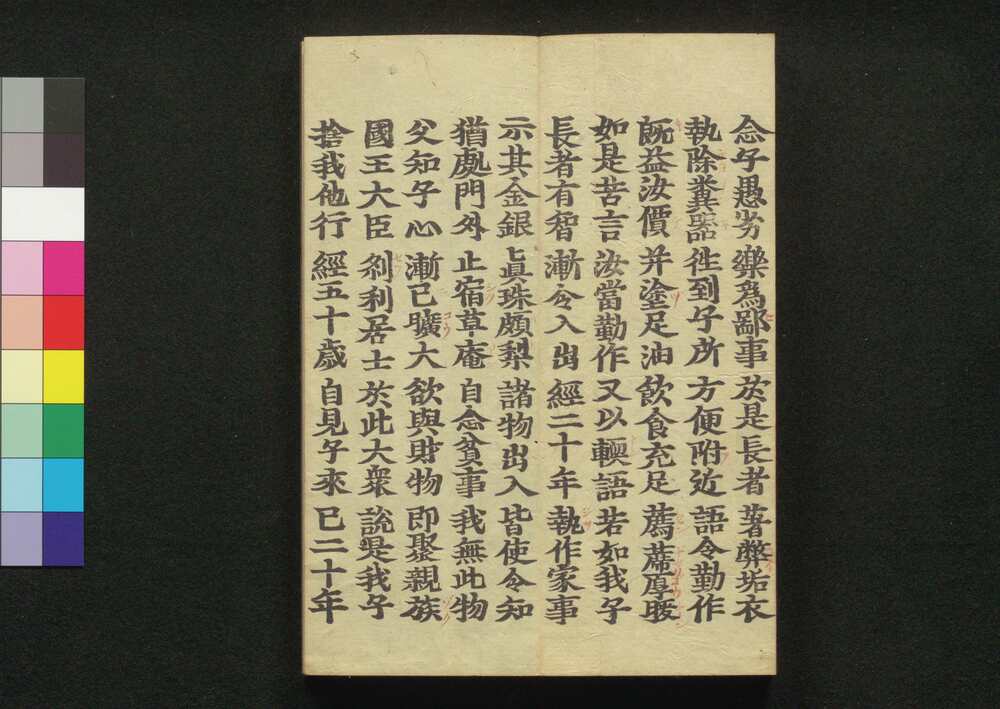 念子愚劣 樂爲鄙事 於是長者 著弊垢衣
執除糞器 徃到子所 方便附近 語令勤作
既益汝價 并塗足油 飲食充足 薦蓆厚暖
如是苦言 汝當勤作 又以輭語 若如我子
長者有智 漸令入出 經二十年 執作家事
示其金銀 眞珠頗梨 諸物出入 皆使令知
猶處門外 止宿草庵 自念貧事 我無此物
父知子心 漸已曠大 欲與財物 即聚親族
國王大臣 刹利居士 於此大衆 說是我子
捨我他行 經五十歲 自見子來 已二十年